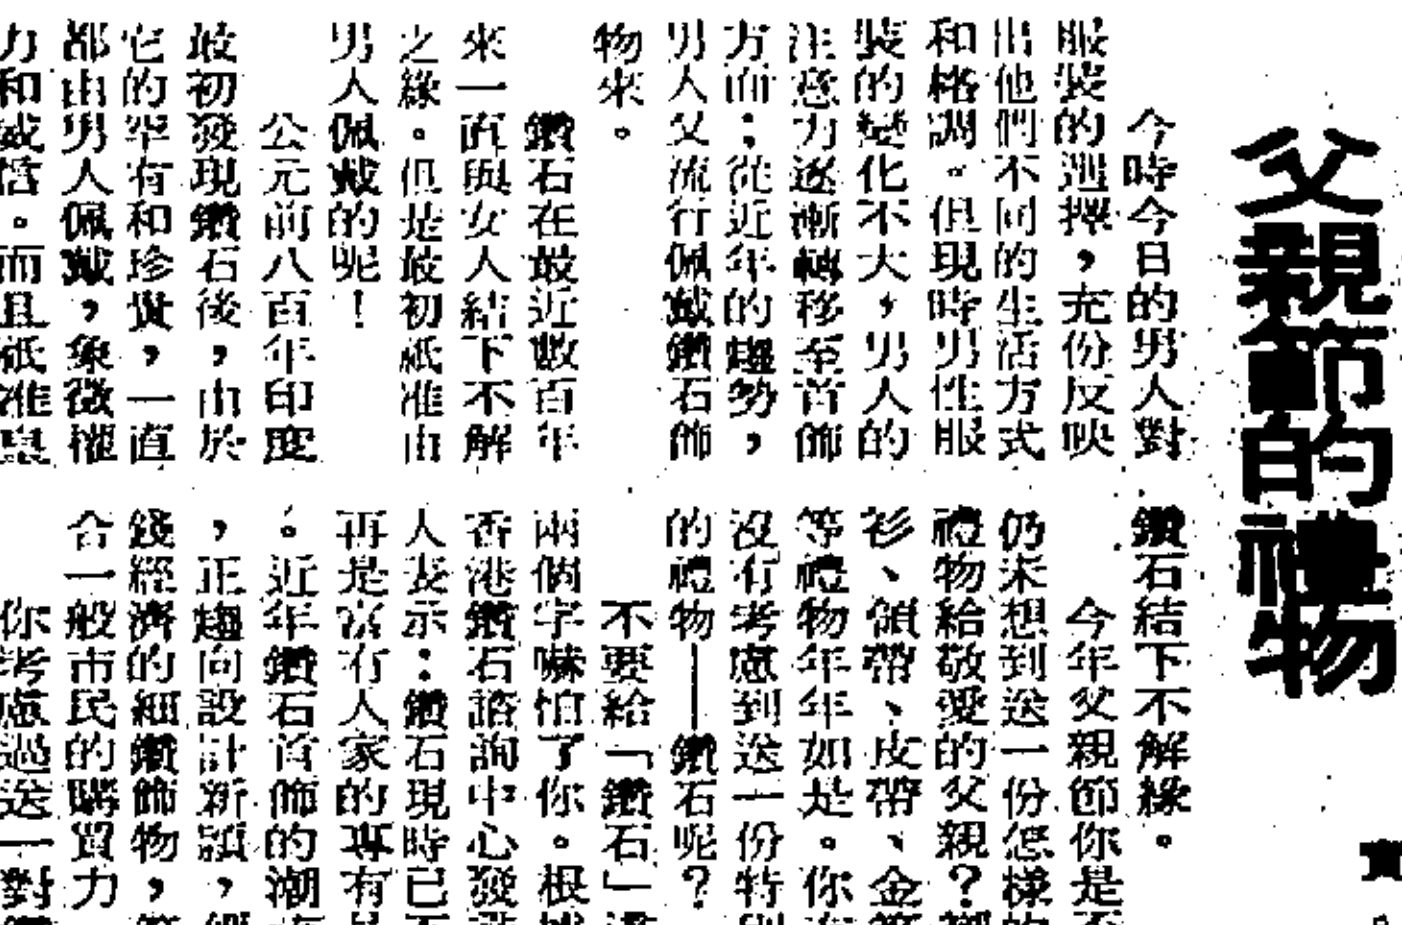 父親節的禮物
今時今日的男人對
服裝的選擇，充份反映
出他們不同的生活方式
和格調。但現時男性服
裝的變化不大，男人的
注意力逐漸轉移至首飾
方面；從近年的趨勢，
男人又流行佩戴鑽石飾
物來。
鑽石在最近數百年
來一直與女人結下不解
之緣。但是最初祇准由
男人佩戴的呢！
公元前八百年印度
最初發現鑽石後，由於
它的罕有和珍貴，一直
都由男人佩戴，象徵權
力和威信。而且祇准皇
鑽石結下不解緣。
今年父親節你是否
仍未想到送一份怎樣的
禮物給敬愛的父親？
衫、領帶、皮帶、金筆
等禮物年年如是。你
沒有考慮到送一份特別
的禮物——鑽石呢？
不要給「鑽石」
兩個字嚇怕了你。根據
香港鑽石諮詢中心發
人表示：鑽石現時已不
再是富有人家的專有
。近年鑽石首飾的潮
，正趨向設計新穎，
錢經濟的細鑽飾物，
合一般市民的購買力
你考慮過送一對